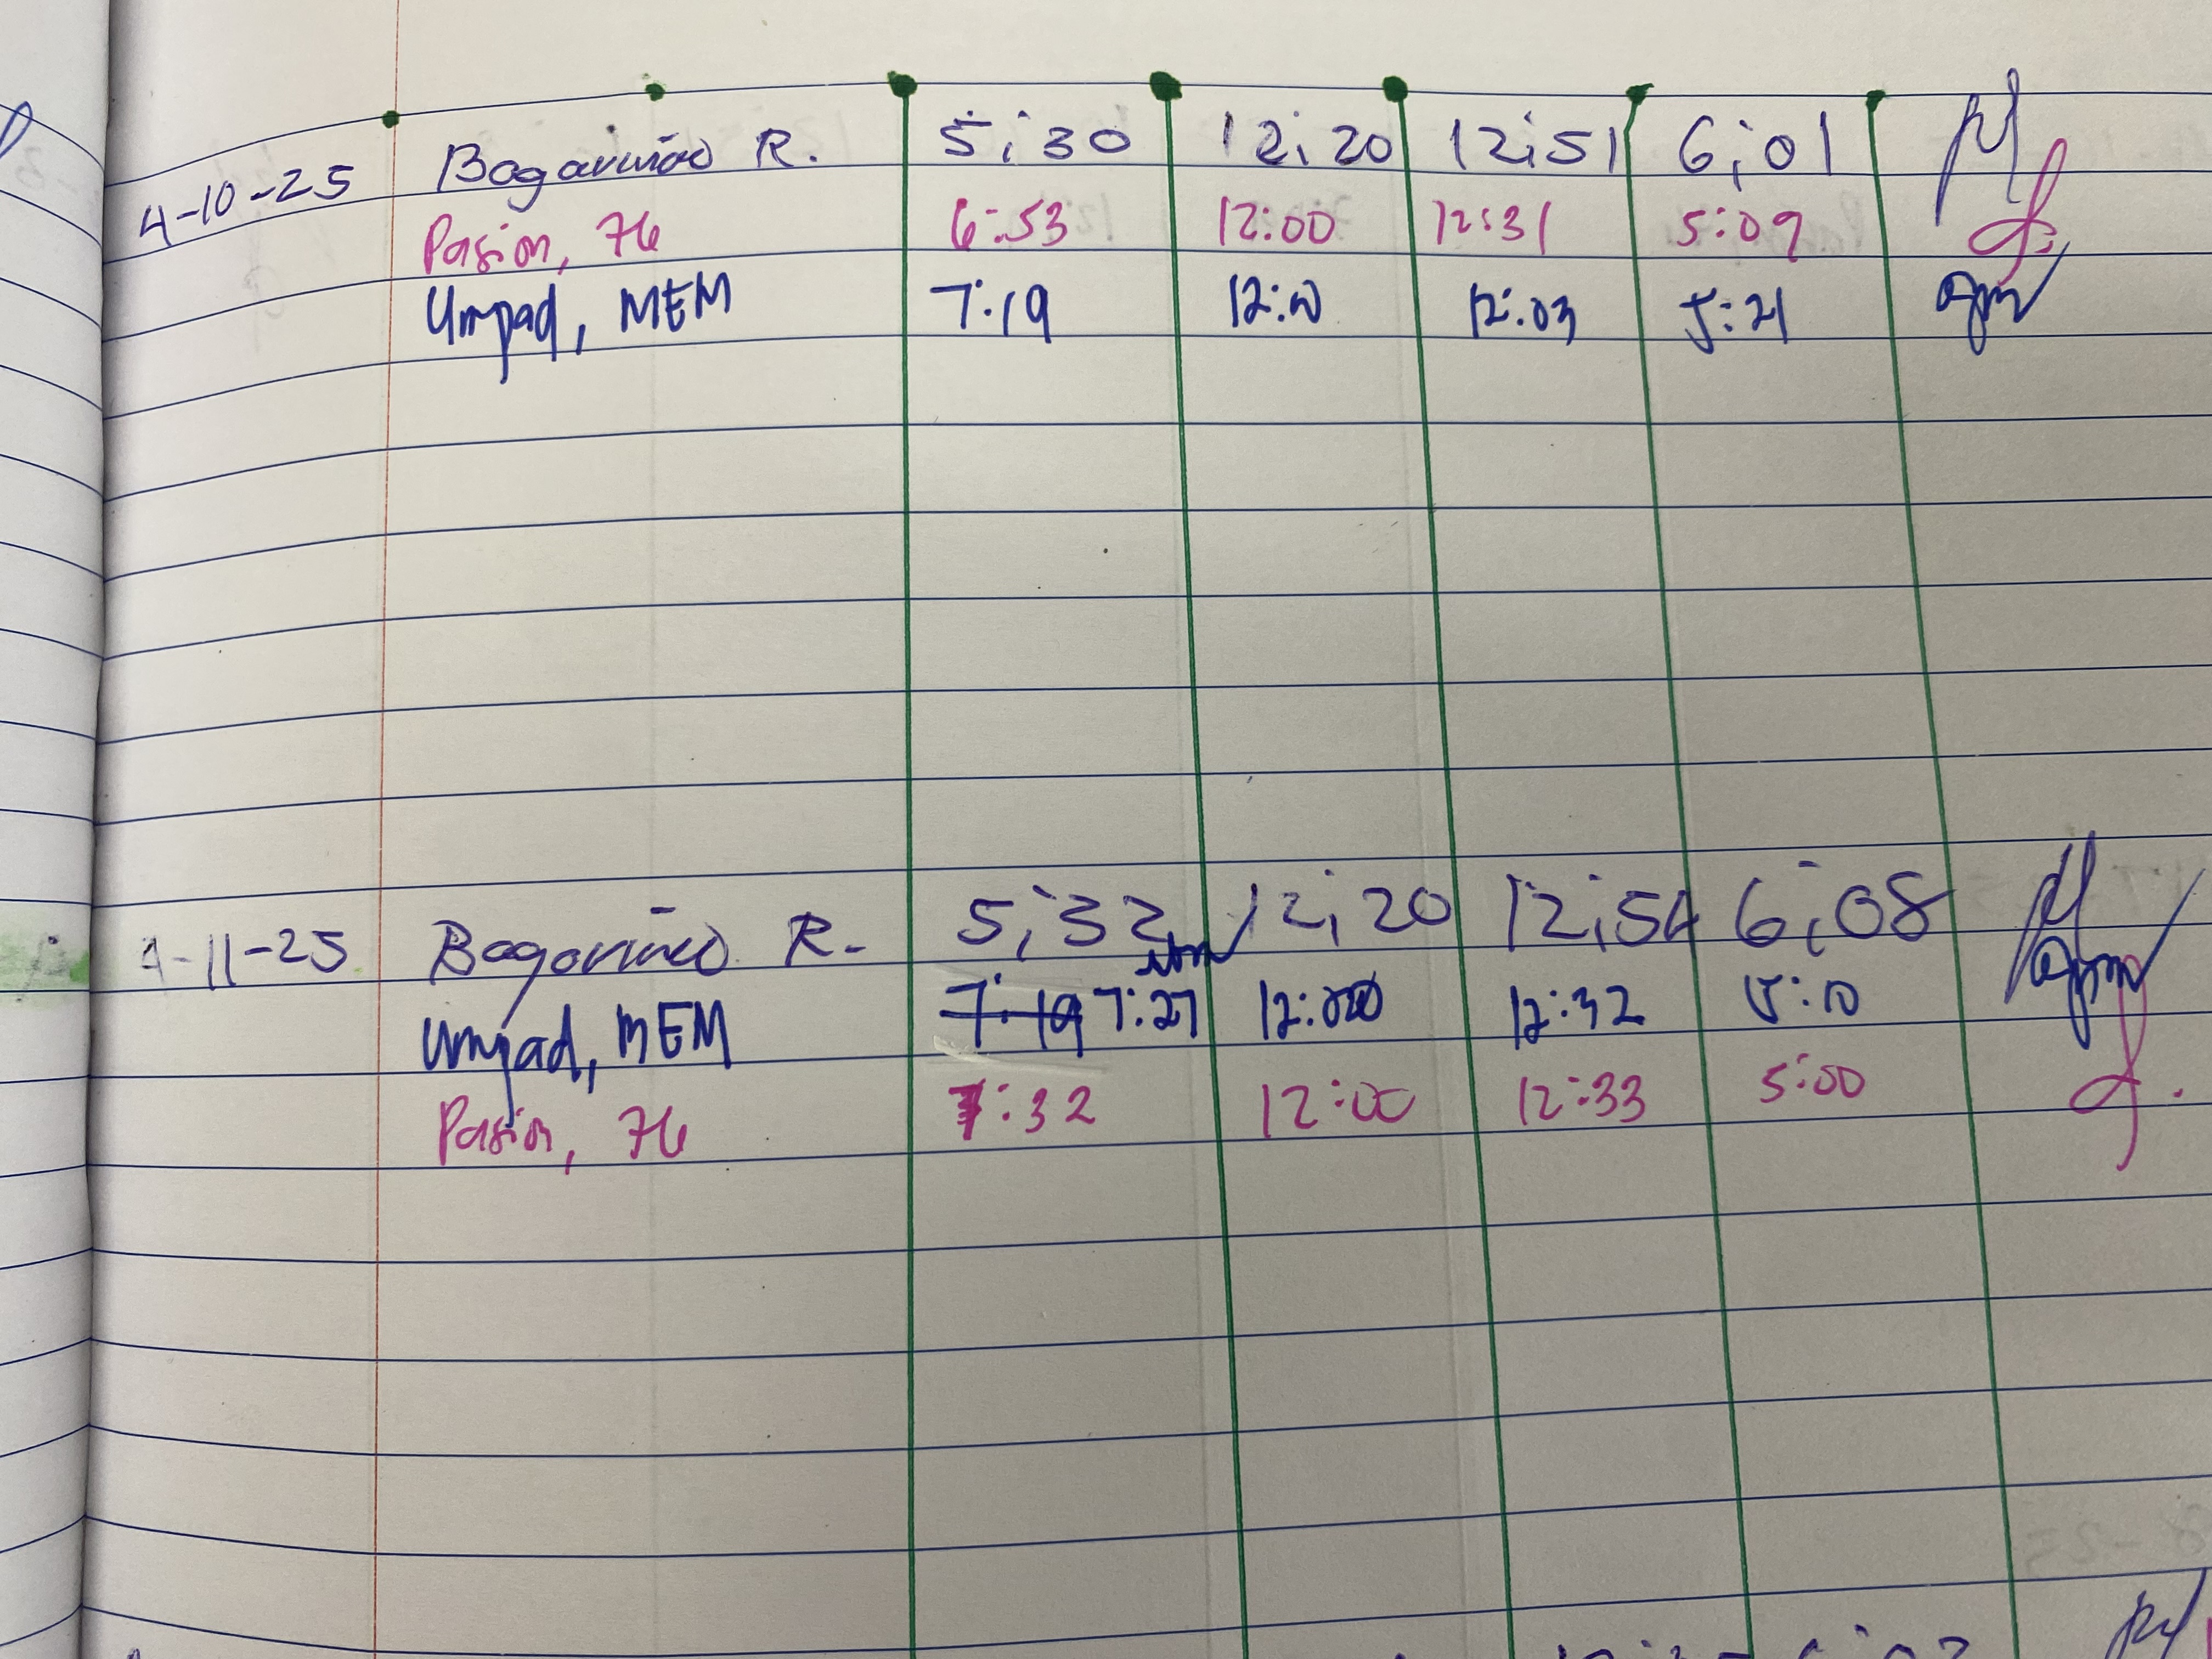 4-10-25 Bagariñao R. 5:30 12:20 12:51 6:01
Pasion, 76 6:53 12:00 12:31 5:09
Umpad, MEM 7:19 12:10 12:03 5:21
4-11-25 Bagariñao R. 5:32 12:20 12:54 6:08
Umpad, MEM 7:19 7:27 12:32 5:10
Pasion, 76 7:32 12:00 12:33 5:00